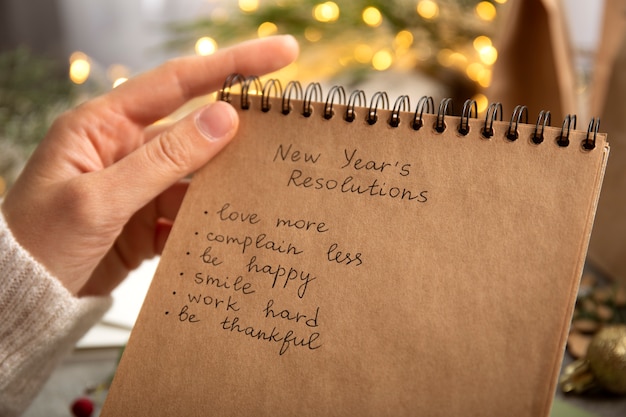 New Year's
Resolutions
• love more
• complain less
• be happy
• smile
• work hard
• be thankful